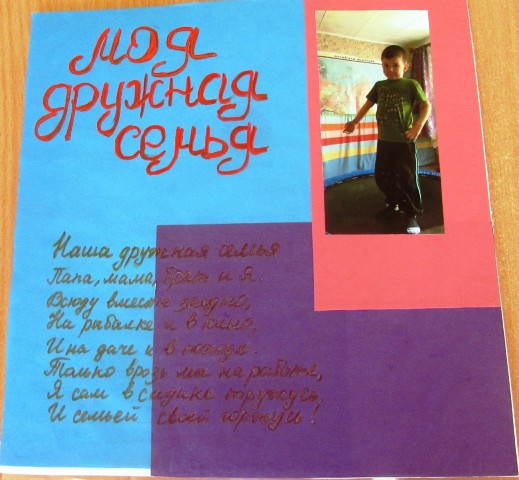 Моя
дружная
семья
Наша дружная семья
Папа, мама, брат и я.
Всюду вместе заодно,
На рыбалке и в кино,
И на даче и в походе.
Только врозь мы на работе,
Я сам в садике тружусь,
И семьёй своей горжусь!